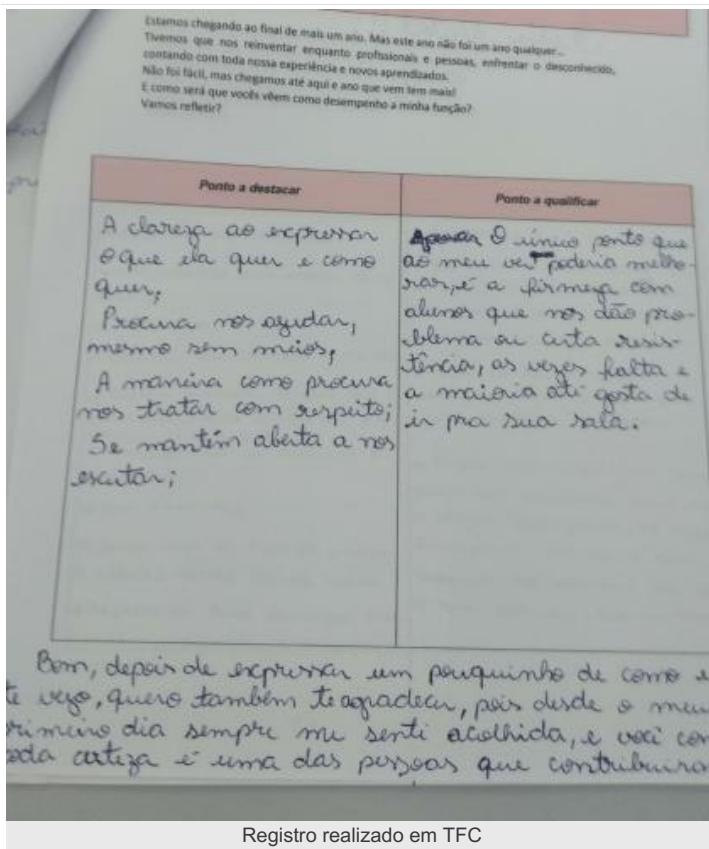 Estamos chegando ao final de mais um ano. Mas este ano não foi um ano qualquer...
Tivemos que nos reinventar enquanto profissionais e pessoas, enfrentar o desconhecido,
contando com toda nossa experiência e novos aprendizados.
Não foi fácil, mas chegamos até aqui e ano que vem tem mais!
E como será que vocês vêem como desempenho a minha função?
Vamos refletir?
Ponto a destacar
A clareza ao expressar
o que ela quer e como
quer;
Procura nos ajudar,
mesmo sem meios;
A maneira como procura
nos tratar com respeito;
Se mantém aberta a nos
escutar;
Ponto a qualificar
O único ponto que
ao meu ver poderia melho-
rar, é a firmeza com
alunos que nos dão pro-
blema ou certa resis-
tência, as vezes falta e
a maioria até gosta de
ir pra sua sala.
Bom, depois de expressar um pouquinho de como
te vejo, quero também te agradecer, pois desde o meu
primeiro dia sempre me senti acolhida, e você com
toda certeza é uma das pessoas que
Registro realizado em TFC